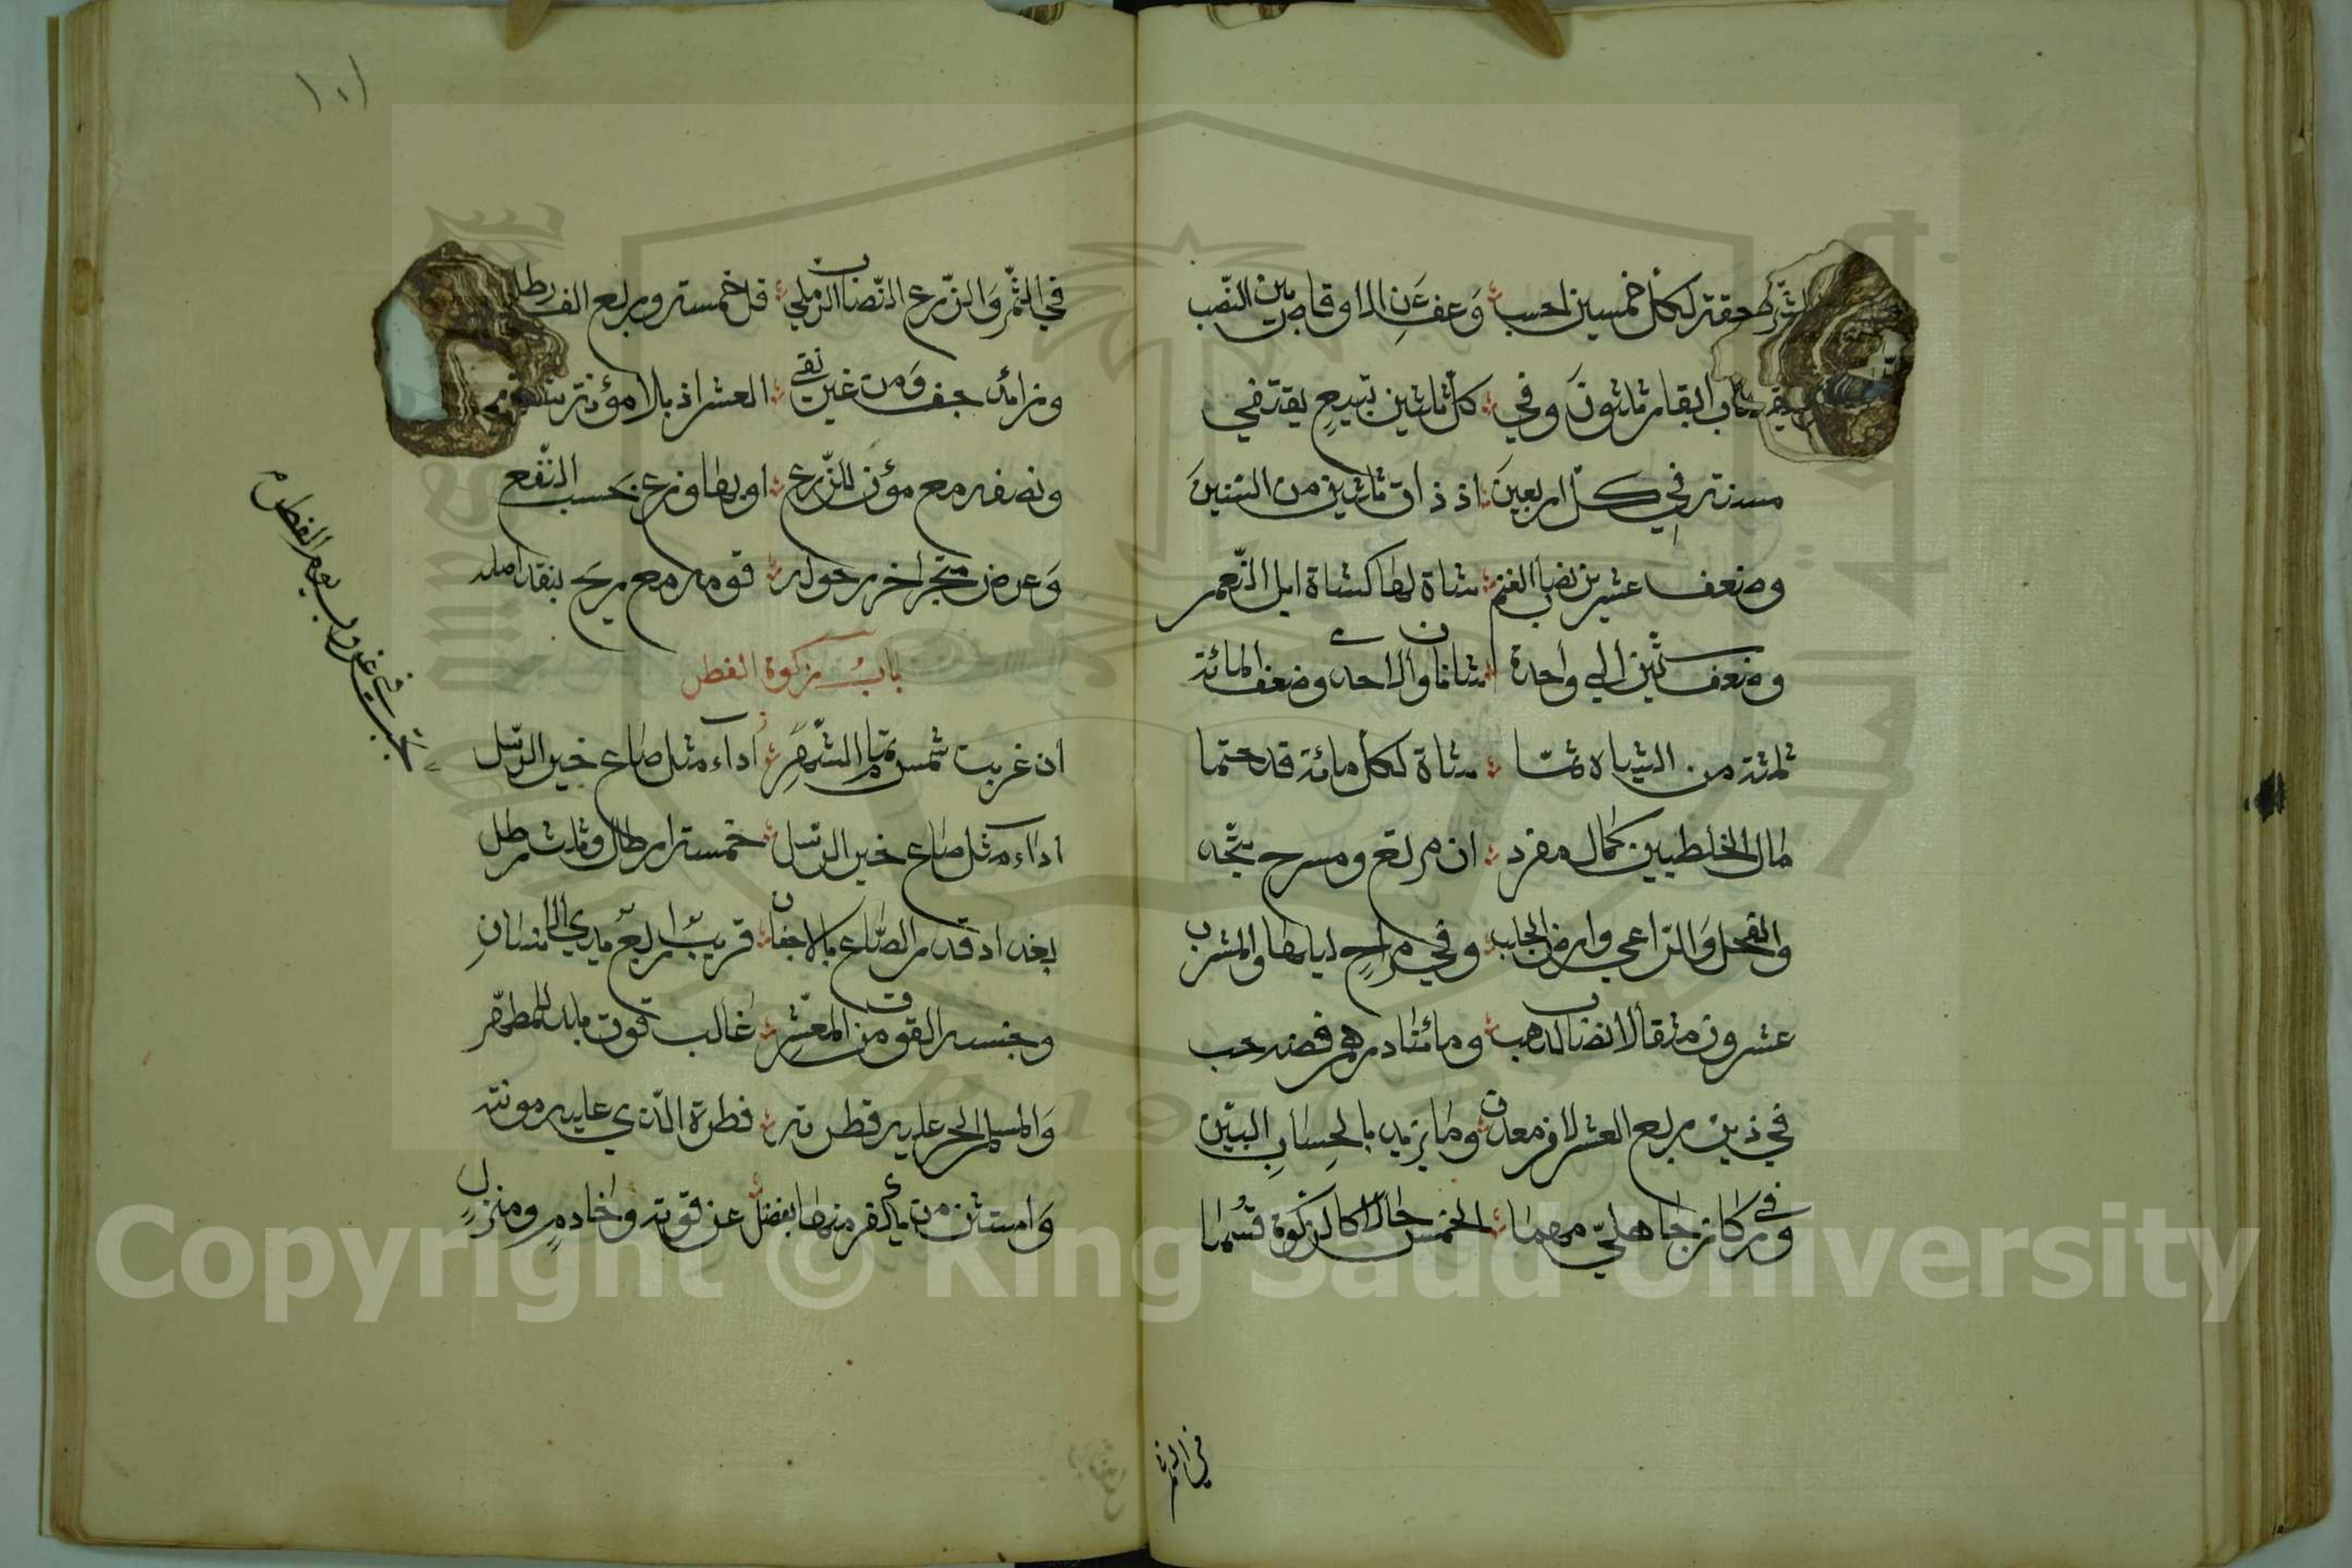 حقة لكل خمسين احسب وعف عن الاوقاص بين النصب
نصاب ابقار ثلثون وفي كل ثلثين تبيع يقتفي
مسنة في كل اربعين اذ ذات ثنتين من السنين
وضعف عشرين نصاب الغنم شاة لها كشاة ابل النعم
وضعف ستين الي واحدة شاتان والاحدى وضعف المائة
ثلثة من الشياه ثمّا شاة لكل مائة قد حتما
مال الخلطيين كمال مفرد ان مرتع ومسرح يتحد
والفحل والراعي وارض الحلب وفي مراح ليلها والمشرب
عشرون مثقالا نصاب الذهب ومائتا درهم فضة حسب
في ذين ربع العشر لا في معدن وما يزيد بالحساب البيّن
وفي ركاز جاهليّ منهما الخمس حالا كالزكوة قسما
في الثمر
١٠١
في الثمر والزرع النصاب الرملي قل خمسة وربع الف رطل
وزائد جف ومن غير نقي العشر اذ بلا مؤنة سقي
ونصفه مع مؤن للزرع او بهما وزع بحسب النفع
وعرض متجر اخر حوله قومه مع ربح بنقد اصله
باب زكوة الفطر
ان غربت شمس تمام الشهر اداء مثل صاع خير الرسل
اداء مثل صاع خير الرسل خمسة ارطال وثلث رطل
بغداد قدر الصاع بالاجفان قريب اربع يدي الانسان
وجنسه القوت من المعشر غالب قوت بلد المطهر
والمسلم الحر عليه فطرته فطرة الذي عليه مونته
واستثن من يكفر منها بفضل عن قوته وخادم ومنزل
تجب في غروب يوم الفطر